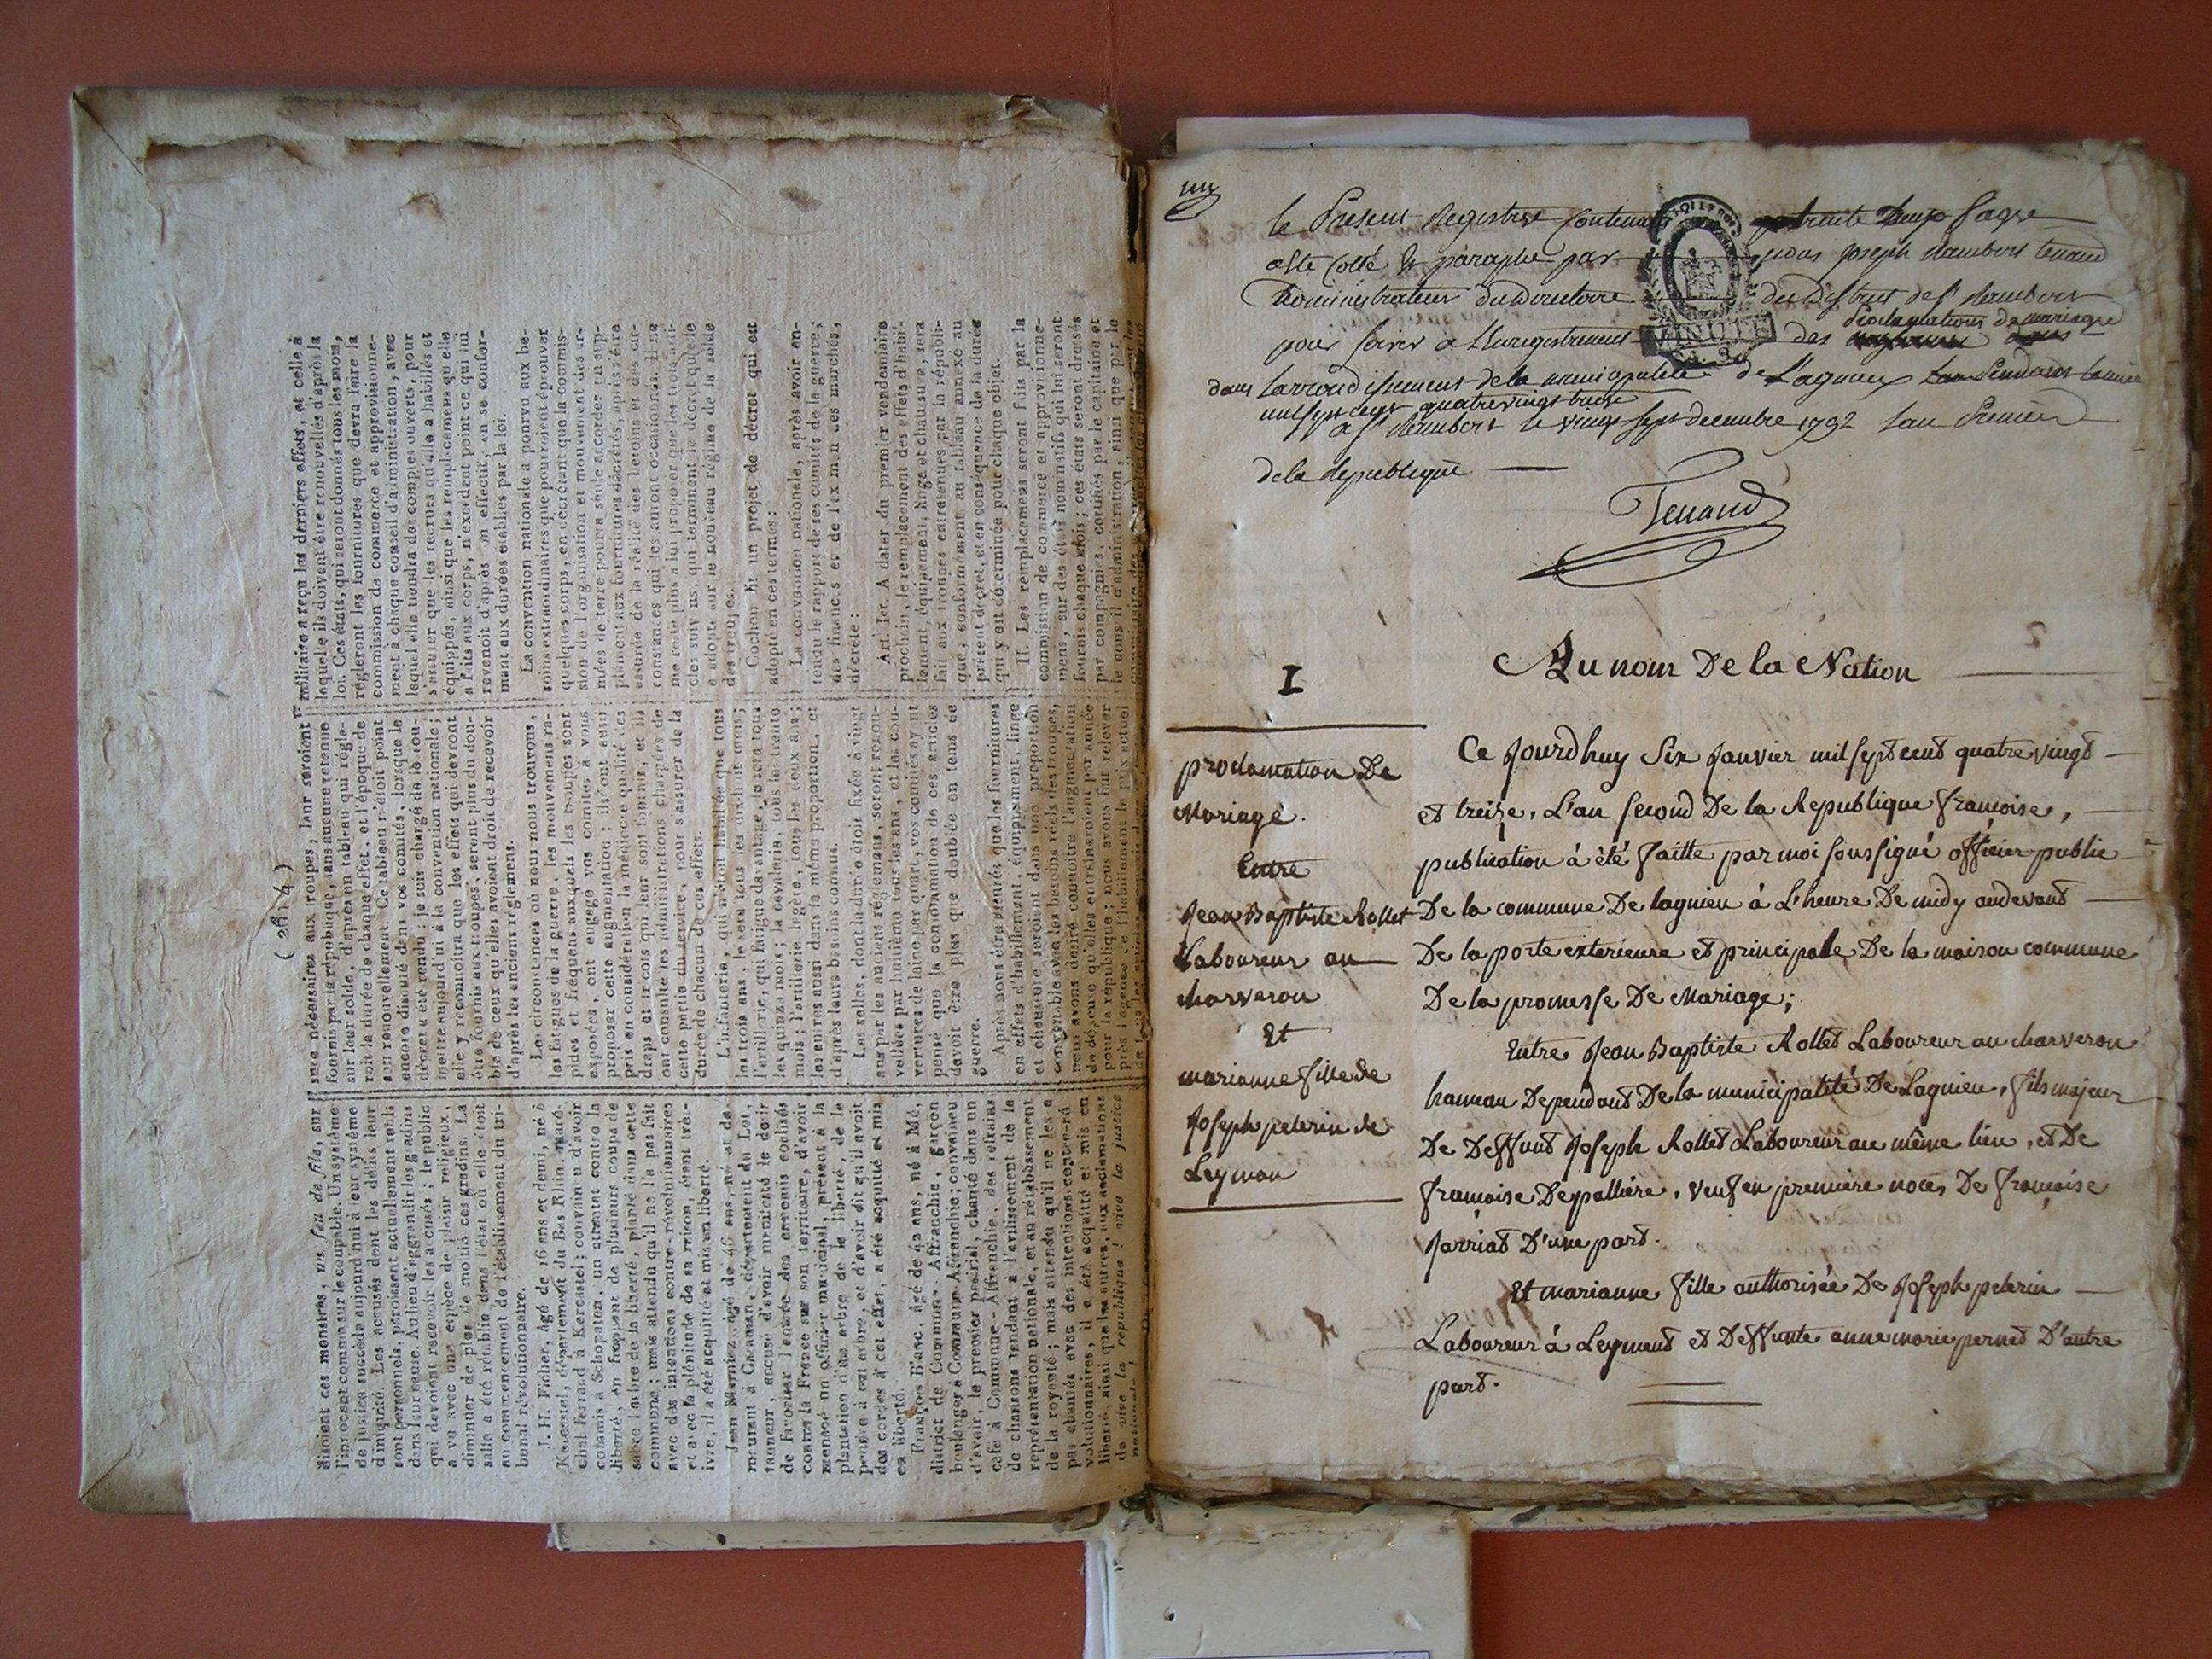 ( 2614 )
disoient ces monstres, un feu de file, sur
l'innocent comme sur le coupable. Un systéme
de justice succède aujourd'hui à leur systéme
d'iniquité. Les accusés dont les délits leur
sont personnels, paroissent actuellement
dans leur cause. Au lieu d'aggrandir les gradins
qui devoient recevoir les accusés ; le public
a vu avec une espèce de plaisir religieux,
diminuer de plus de moitié ces gradins. La
salle a été rétablie dans l'état où elle étoit
au commencement de l'établissement du tri-
bunal révolutionnaire.
J. H. Ficher, âgé de 16 ans et demi, né à
département du Bas Rhin, maré-
chal ferrand à convaincu d'avoir
commis à un attentat contre la
liberté, en frappant de plusieurs coups de
sabre l'arbre de la liberté, planté dans cette
commune ; mais attendu qu'il ne l'a pas fait
avec des intentions contre-révolutionnaires
et avec la plénitude de sa raison, étant très-
ivre, il a été acquitté et mis en liberté.
Jean âgé de 46 ans, né et de-
meurant à département du Lot,
tanneur, accusé d'avoir manifesté le desir
de favoriser l'entrée des ennemis coalisés
contre la France sur son territoire, d'avoir
menacé un officier municipal, présent à la
plantation d'un arbre de la liberté de le
pendre à cet arbre, et d'avoir dit qu'il avoit
des cordes à cet effet, a été acquitté et mis
en liberté.
François âgé de 42 ans, né à
district de Commune-Affranchie, garçon
boulanger à Commune-Affranchie ; convaincu
d'avoir, le premier prairial, chanté dans un
café à Commune-Affranchie, des refrains
de chansons tendant à l'avilissement de la
représentation nationale, et au rétablissement
de la royauté ; mais attendu qu'il ne les a
pas chantés avec des intentions contre-ré-
volutionnaires, il a été acquitté et mis en
liberté, ainsi que les autres, aux acclamations
de vive la république ! vive la justice
nationale !
nécessaires aux troupes, leur seroient
fournis par la république, sans aucune retenue
sur leur solde, d'après un tableau qui régle-
roit la durée de chaque effet, et l'époque de
son renouvellement. Ce tableau n'étoit point
encore discuté dans vos comités, lorsque le
décret a été rendu : je suis chargé de le sou-
mettre aujourd'hui à la convention nationale ;
elle y reconnoîtra que les effets qui devront
être fournis aux troupes, seront plus du dou-
ble de ceux qu'elles avoient droit de recevoir
d'après les anciens réglemens.
Les circonstances où nous nous trouvons,
les fatigues de la guerre, les mouvemens ra-
pides et fréquens auxquels les troupes sont
exposées, ont engagé vos comités à vous
proposer cette augmentation ; ils ont aussi
pris en considération la médiocre qualité des
draps et tricots qui leur sont fournis, et ils
ont consulté les administrations chargées de
cette partie du service, pour s'assurer de la
durée de chacun de ces effets.
L'infanterie, qui n'étoit habillée que tous
les trois ans, le sera tous les dix-huit mois ;
l'artillerie, qui fatigue davantage, le sera tous
les quinze mois ; la cavalerie, tous les trente
mois ; l'artillerie légère, tous les deux ans ;
les autres aussi dans la même proportion, et
d'après leurs besoins connus.
Les selles, dont la durée étoit fixée à vingt
ans par les anciens réglemens, seront renou-
vellées par huitième tous les ans, et les cou-
vertures de laine par quart, vos comités ayant
pensé que la consommation de ces articles
devoit être plus que doublée en tems de
guerre.
Après nous être assurés que les fournitures
en effets d'habillement, équipement, linge
et chaussure seroient dans une proportion
convenable avec les besoins réels des troupes,
nous avons desiré connoître l'augmentation
de dépense qu'elles entraîneroient par année
pour la république ; nous avons fait relever
près l'agence de l'habillement le prix actuel
militaire a reçu les derniers effets, et celle à
laquelle ils doivent être renouvellés d'après la
loi. Ces états, qui seront donnés tous les mois,
régleront les fournitures que devra faire la
commission de commerce et approvisionne-
ment à chaque conseil d'administration, avec
lequel elle tiendra des comptes ouverts, pour
s'assurer que les recrues qu'elle a habillés et
équippés, ainsi que les remplacemens qu'elle
a faits aux corps, n'excèdent point ce qui lui
revenoit d'après son effectif, en se confor-
mant aux durées établies par la loi.
La convention nationale a pourvu aux be-
soins extraordinaires que pourroient éprouver
quelques corps, en décrétant que la commis-
sion de l'organisation et mouvement des ar-
mées de terre pourra seule accorder un sup-
plément aux fournitures décrétés, après s'être
assurée de la réalité des besoins et des cir-
constances qui les auront occasionnés. Il ne
me reste plus à lui proposer que les
cles suivans, qui terminent le décret qu'elle
a adopté sur le nouveau régime de la solde
des troupes.
Cochon lit un projet de décret qui est
adopté en ces termes :
La convention nationale, après avoir en-
tendu le rapport de ses comités de la guerre,
des finances et de l'examen des marchés,
décrète :
Art. Ier. A dater du premier vendémiaire
prochain, le remplacement des effets d'habil-
lement, équipement, linge et chaussure, sera
fait aux troupes entretenues par la républi-
que, conformément au tableau annexé au
présent décret, et en conséquence de la durée
qui y est déterminée pour chaque objet.
II. Les remplacemens seront faits par la
commission de commerce et approvisionne-
mens, sur des états nominatifs qui lui seront
fournis chaque mois ; ces états seront dressés
par compagnies, certifiés par le capitaine et
le conseil d'administration, ainsi que par le
un
le Present Registre Contenant trente deux page
esté Cotté & paraphé par nous joseph Rambert tenand
administrateur du Directoire du District de St Rambert
pour servir à l'enregistrement des déclarations de mariage
MINUTE
dans l'arrondissement de la municipalité de Lagnieu pendant l'année
mil sept cent quatre vingt treize
a St Rambert le vingt sept decembre 1792 l'an Premier
de la Republique
Tenand
I
Au nom De la Nation
proclamation De
Mariage.
Entre
Jean Baptiste Rollet
Laboureur au
charveron
Et
marianne fille de
Joseph pelerin de
Leyman
Ce Jourdhuy Six Janvier mil sept cent quatre vingt
et treize, L'an second De la Republique francoise,
publication à été faitte par moi soussigné officier public
De la commune De lagnieu à L'heure De midy au devant
De la porte exterieure et principale De la maison commune
De la promesse De Mariage ;
Entre Jean Baptiste Rollet Laboureur au charveron
hameau Dependant De la municipalité De Lagnieu, fils majeur
De Deffunt Joseph Rollet Laboureur au même lieu, et De
françoise Depalliere, veuf en premiere noces De françoise
Jarriat D'une part.
Et marianne fille authorisée De Joseph pelerin
Laboureur à Leyment et Deffunte anne marie pernet D'autre
part.